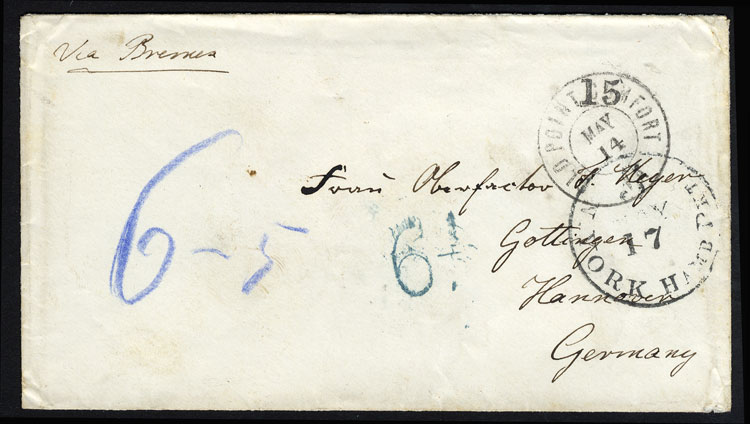 Via Bremen
OLD POINT COMFORT
15
MAY
14
NEW YORK HAMB. PKT.
MAY
17
6-5
6
Frau Oberfactor A. Meyer
Gottingen
Hannover
Germany